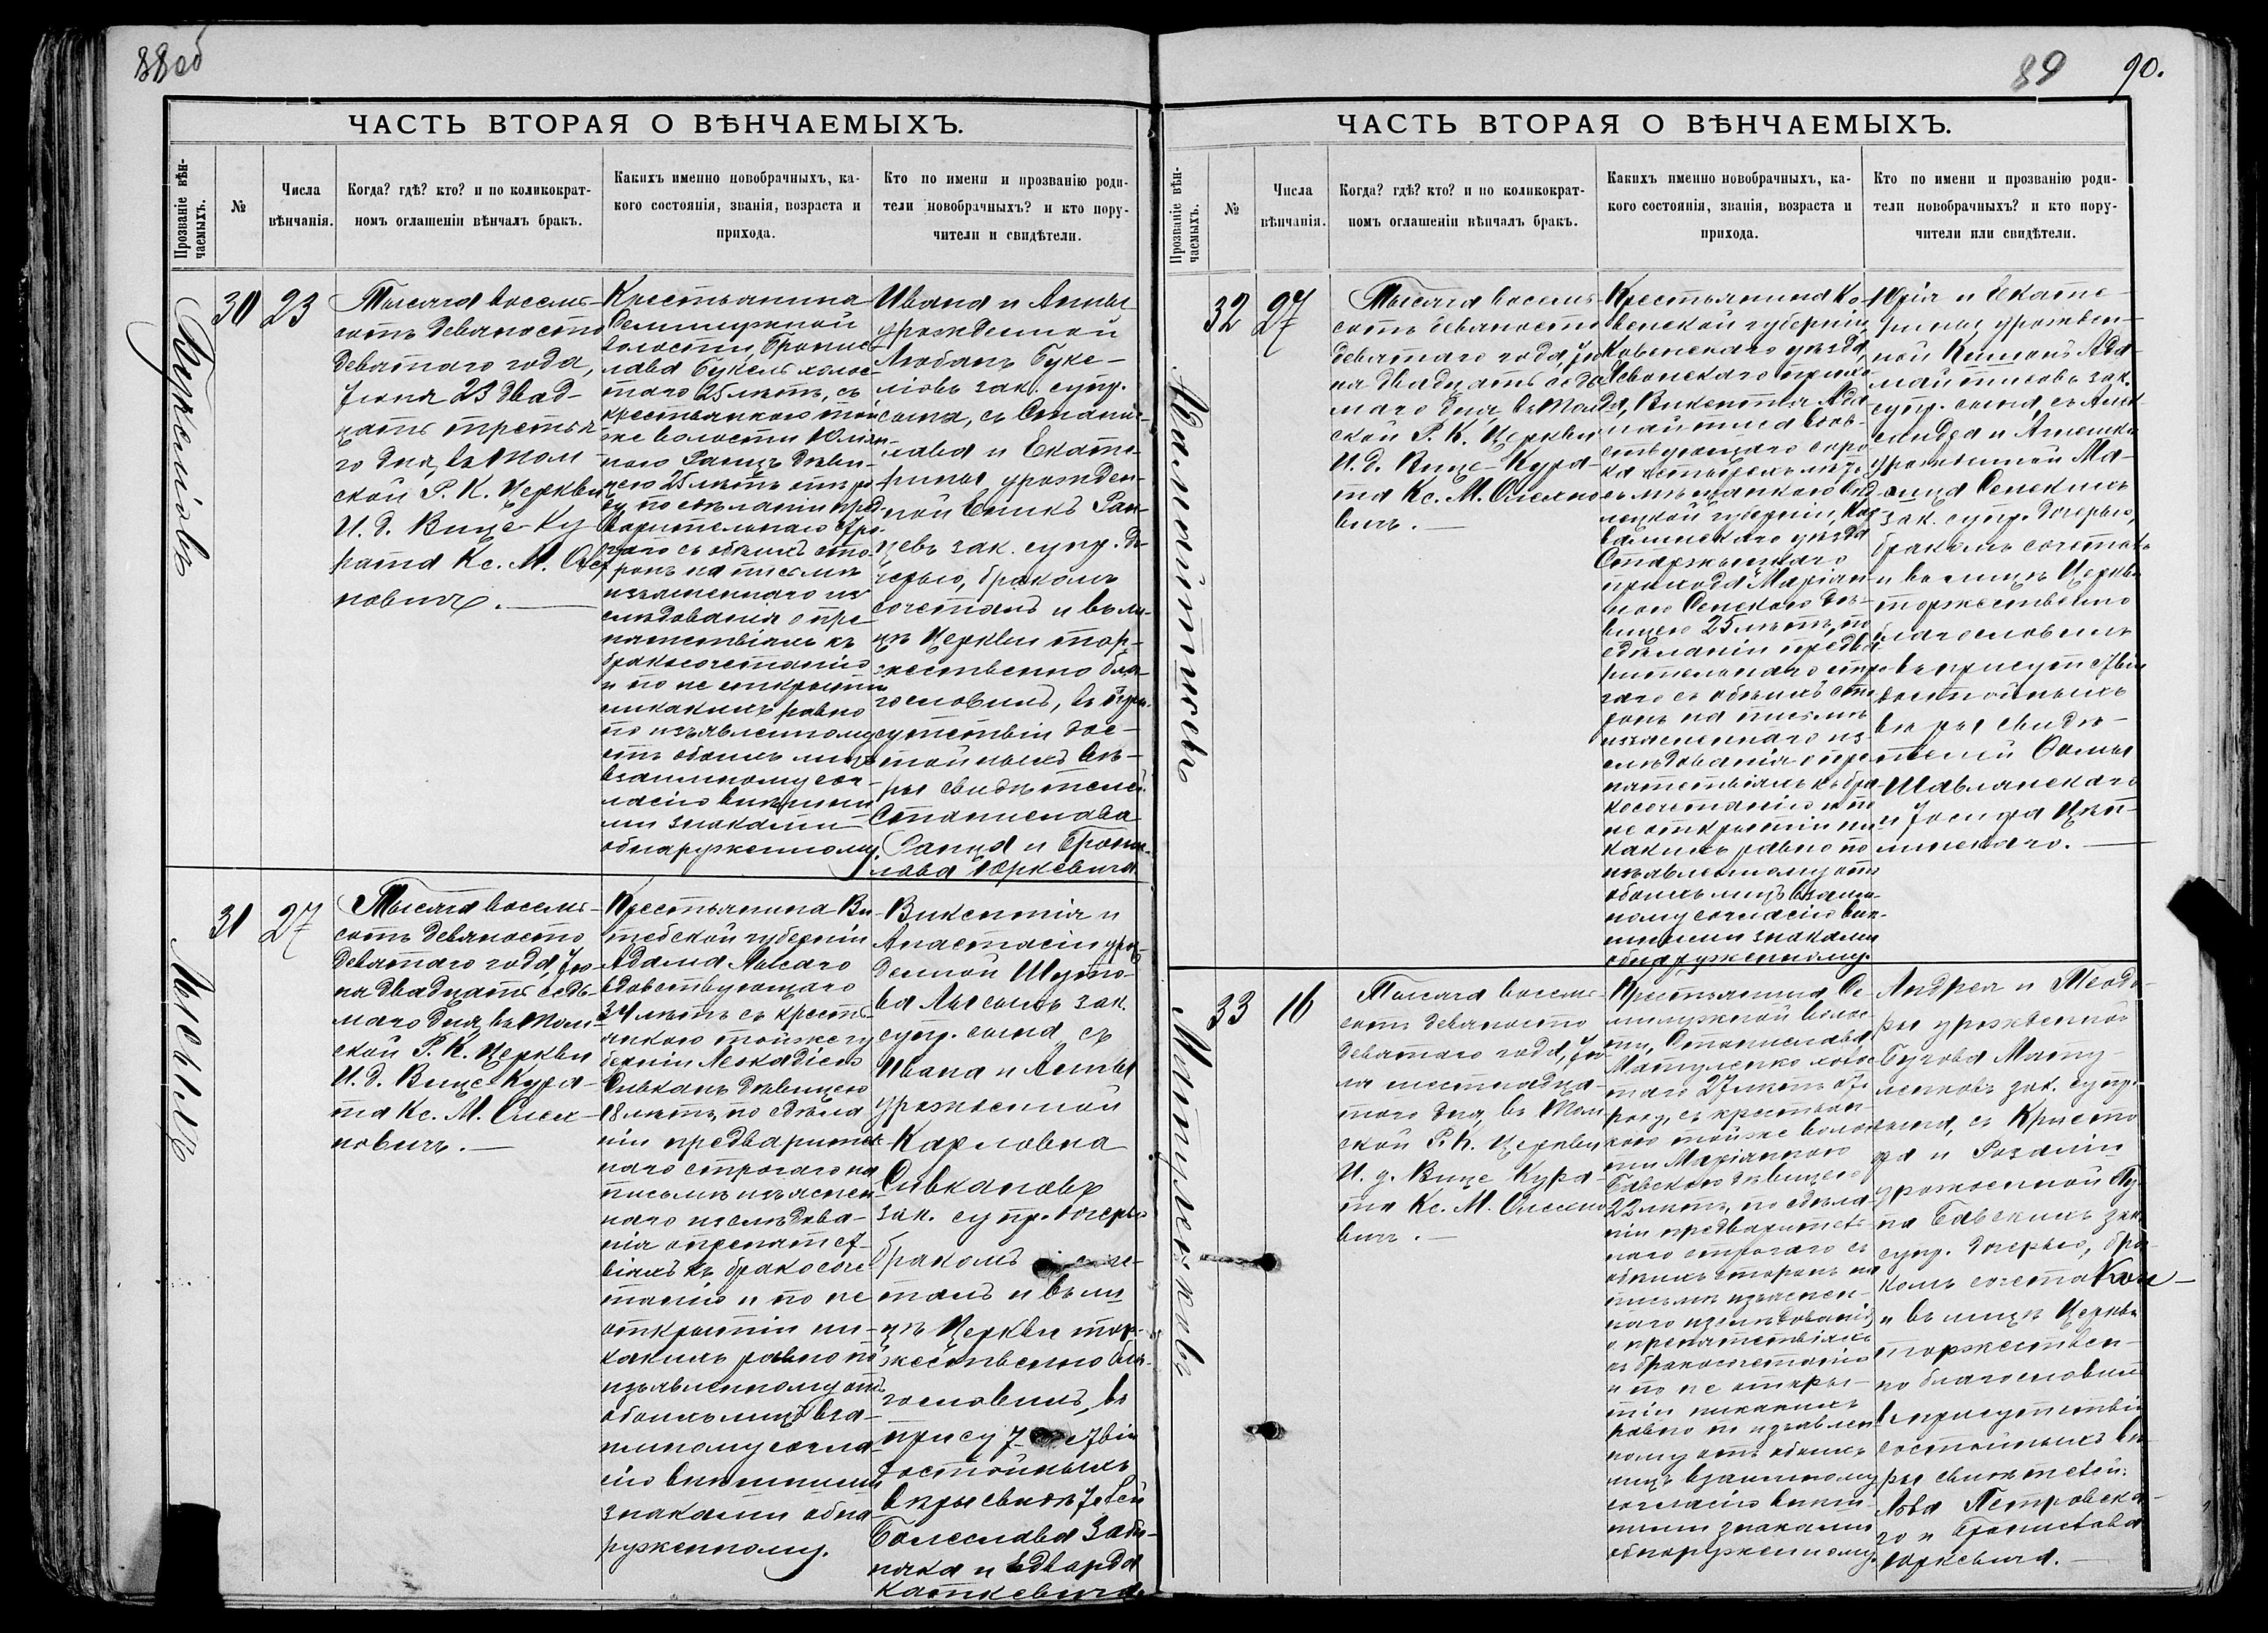 88 об
ЧАСТЬ ВТОРАЯ О ВѢНЧАЕМЫХЪ.
Прозваніе вѣн-
чаемыхъ.
№
Числа
вѣнчанія.
Когда? гдѣ? кто? и по коликократ-
номъ оглашеніи вѣнчалъ бракъ.
Какихъ именно новобрачныхъ, ка-
кого состоянія, званія, возраста и
прихода.
Кто по имени и прозванію роди-
тели новобрачныхъ? и кто пору-
чители и свидѣтели.
30
23
Тысяча восемь-
сотъ девяносто
девятаго года,
Іюня 23 двад-
цать третья-
го дня, въ Том-
ской Р. К. Церкви
И. д. Вице-Ку
рата Кс. М. Олех
новичъ.
Крестьянина
Семилужной
волости, Бронис-
лава Букель холос-
таго 25 лѣтъ, съ
крестьянкою той
же волости Юлія-
ною Ранцъ дѣви-
цею 25 лѣтъ отъ ро
ду, по сдѣланіи пред
варительнаго стро
гаго съ обѣихъ сто-
ронъ на письмѣ
изъясненнаго из
слѣдованія о пре-
пятствіяхъ къ
бракосочетанію
и по не открытіи
никакихъ равно
по изъявленному
отъ обоихъ лицъ
взаимному сог-
ласію внѣшни
ми знаками
обнаруженному.
Ивана и Анны
урожденной
Любанъ Буке-
лювъ зак. супр.
сына, съ Станис-
лава и Екате-
рины урожден-
ной Ран-
цевъ зак. супр. до-
черью, бракомъ
сочеталъ и въ ли-
цѣ Церкви тор-
жественно бла-
гословилъ, въ при-
сутствіи дос-
тойныхъ вѣ-
ры свидѣтелей
Станислава
Ранца и Брони-
лава Юркевича
31
27
Тысяча восемь-
сотъ девяносто
девятаго года, Ію-
ня двадцать седь-
маго дня, въ Том-
ской Р. К. Церкви
И. д. Вице-Кура-
та Кс. М. Олех-
новичъ.
Крестьянина Ви
тебской губерніи
Адама Лысаго
вдовствующаго
34 лѣтъ съ кресть-
янкою тойже гу
берніи Леокадіею
Сивканъ дѣвицею
18 лѣтъ, по сдѣла
ніи предварител
наго строгаго на
письмѣ изъяснен
наго изслѣдова-
нія о препятст-
віяхъ къ бракосоче
танію и по не
открытіи ни-
какихъ равно по
изъявленному отъ
обоихъ лицъ вза-
имному согла-
сію внѣшними
знаками обна-
руженному.
Викентія и
Анастасіи урож
денной Шуто-
ва Лысыхъ зак.
супр. сына, съ
Ивана и Анны
урожденной
Карловна
Сивкановъ
зак. супр. дочерью
бракомъ соче-
талъ и въ ли
цѣ Церкви тор-
жественно бла-
гословилъ, въ
присутствіи
достойныхъ
вѣры свидѣтелей
Болеслава Заби-
няка и Эдварда
Каткевича
89
90.
ЧАСТЬ ВТОРАЯ О ВѢНЧАЕМЫХЪ.
Прозваніе вѣн-
чаемыхъ.
№
Числа
вѣнчанія.
Когда? гдѣ? кто? и по коликократ-
номъ оглашеніи вѣнчалъ бракъ.
Какихъ именно новобрачныхъ, ка-
кого состоянія, званія, возраста и
прихода.
Кто по имени и прозванію роди-
тели новобрачныхъ? и кто пору-
чители или свидѣтели.
32
27
Тысяча восемь-
сотъ девяносто
девятаго года, Ію
ня двадцать седь
маго дня, въ Том
ской Р. К. Церкви
И. д. Вице-Кура-
та Кс. М. Олехно
вичъ.
Крестьянина Ко-
венской губерніи
Ковенскаго уѣзда,
прихо
да, Викентія Ада
майтиса вдов-
ствующаго соро
ка четырехъ лѣтъ
съ мѣщанкою
лецкой губерніи,
уѣзда
прихода Маріан
ною Сенскою дѣ-
вицею 25 лѣтъ, по
сдѣланіи предва
рительнаго стро
гаго съ обѣихъ сто
ронъ на письмѣ
изъясненнаго из
слѣдованія о пре
пятствіяхъ къ бра
косочетанію и по
не открытіи ни
какихъ равно по
изъявленному отъ
обоихъ лицъ взаим-
ному согласію внѣ-
шними знаками
обнаруженному.
Юрія и Екате-
рины урожден-
ной Ада-
майтисовъ зак.
супр. сына, съ Алек
сандра и Агнешки
урожденной Ма-
зак. супр. дочерью,
бракомъ сочеталъ
и въ лицѣ Церкви
торжественно
благословилъ
въ присутствіи
достойныхъ
вѣры свидѣ-
телей Ѳомы
Шавлинскаго
и Іосифа
33
16
Тысяча восемь-
сотъ девяносто
девятаго года, Ію-
ля шестнадца-
таго дня, въ Том
ской Р. К. Церкви
И. д. Вице Кура-
та Кс. М. Олехно
вичъ.
Крестьянина Се
милужной волос
ти, Станислава
Матуленко холос
таго 27 лѣтъ отъ
роду, съ крестьян-
кою тойже волос
ти Маріанною
Бавскою дѣвицею
22 лѣтъ, по сдѣла
ніи предварител-
наго строгаго съ
обѣихъ сторонъ на
письмѣ изъяснен-
наго изслѣдованія
о препятствіяхъ
къ бракосочетанію
и по не откры-
тіи никакихъ
равно по изъявлен
ному отъ обоихъ
лицъ взаимному
согласію внѣш-
ними знаками
обнаруженному.
Андрея и Теодо-
ры урожденной
Бугова Мату-
ленковъ зак. супр.
сына, съ Кристо
фа и Розаліи
урожденной
Бавскихъ зак.
супр. дочерью, бра-
комъ сочеталъ
и въ лицѣ Церкви
торжествен-
но благословилъ
въ присутствіи
достойныхъ вѣ-
ры свидѣтелей:
Льва Петровска-
го и Бронислава
Юркевича.